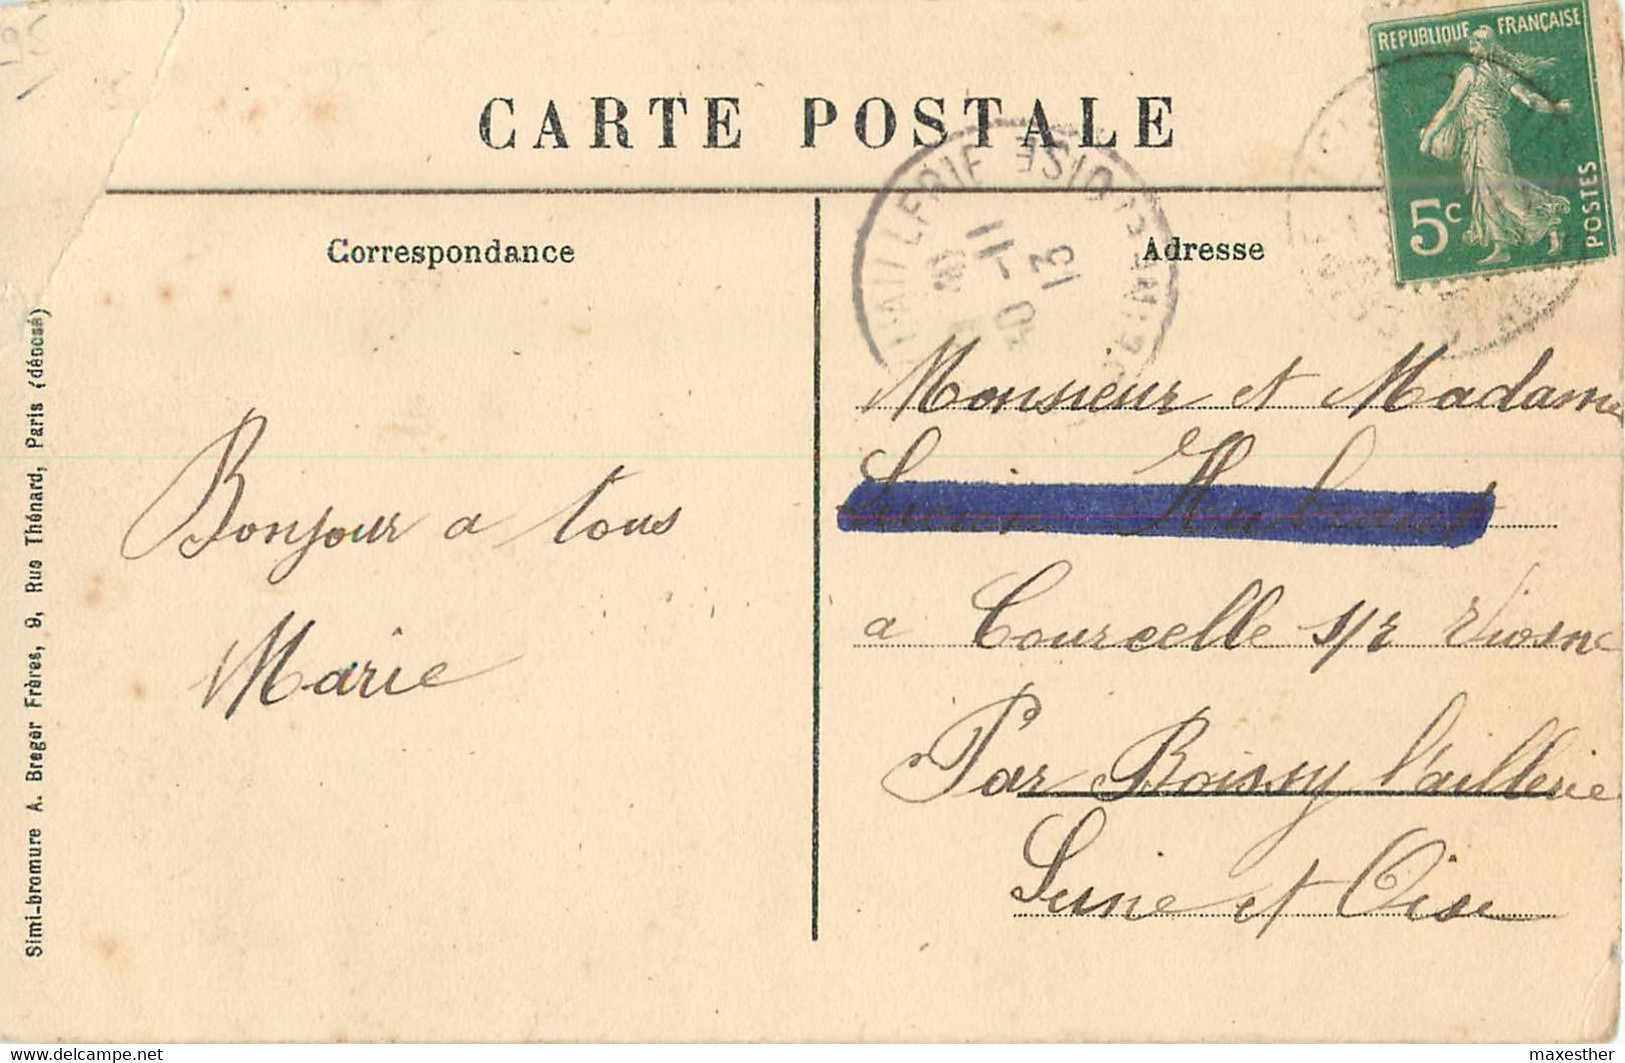 CARTE POSTALE
REPUBLIQUE FRANÇAISE
5c
POSTES
Correspondance
Adresse
11
13
Simi-bromure A. Breger Frères, 9, Rue Thénard, Paris (déposé)
Bonjour a tous
Marie
Monsieur et Madame
Lucien
a Courcelle s/r Viosne
Par Boissy l'aillerie
Seine et Oise
maxesther